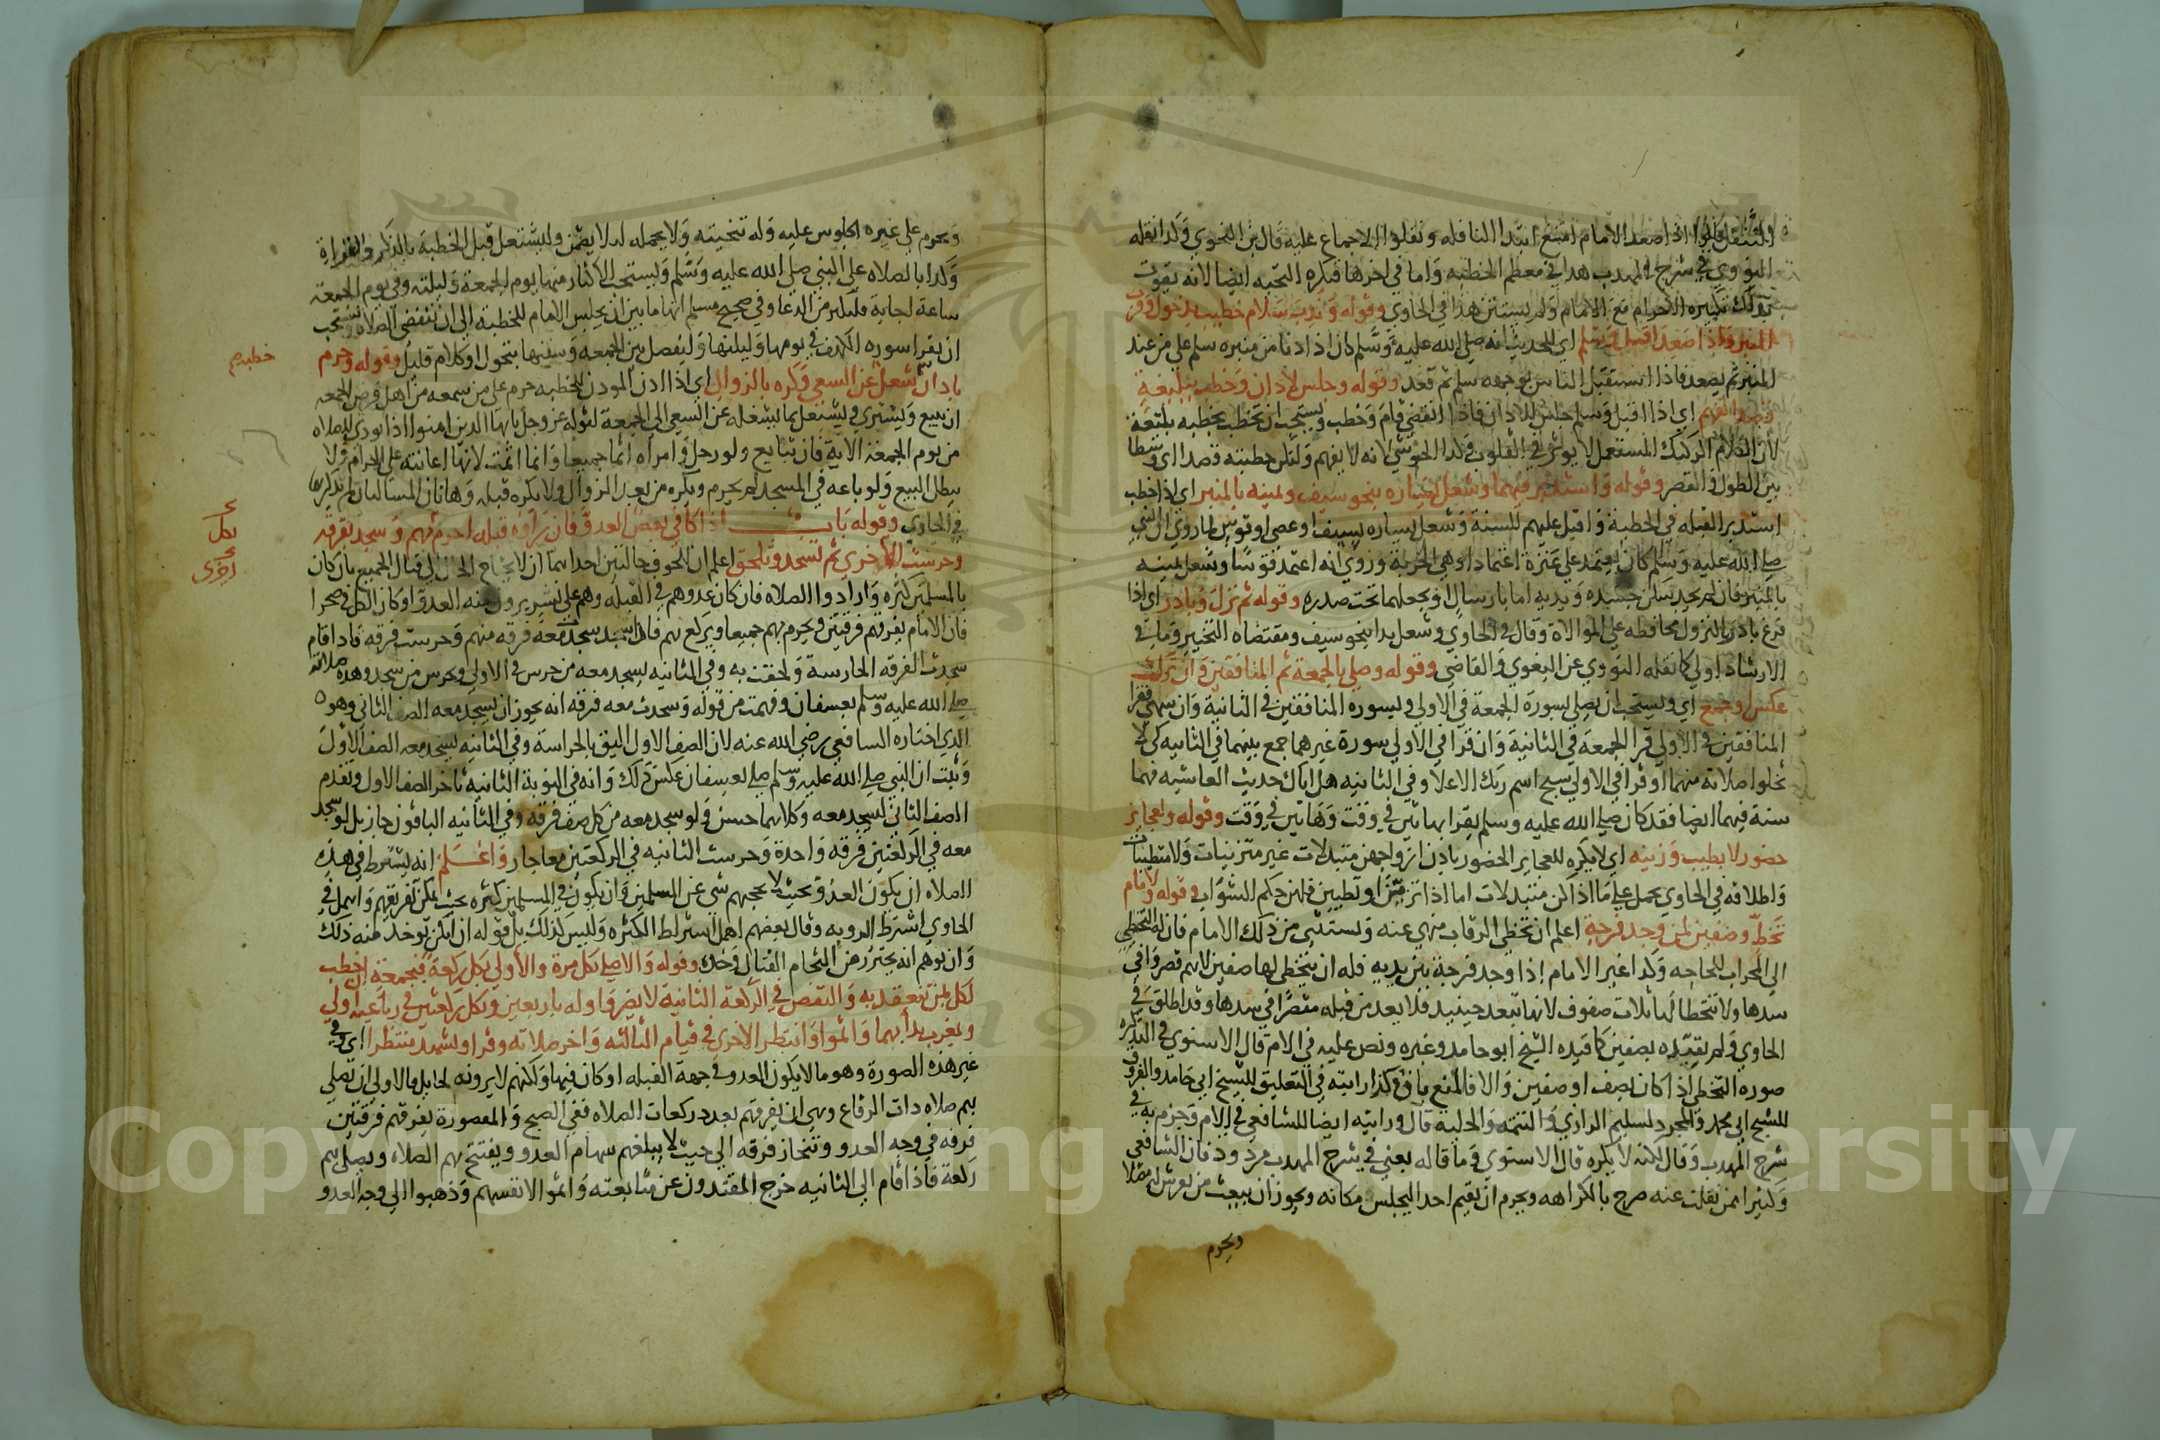 والتنفل قالوا اذا صعد الامام امتنع ابتدا النافله ونقلوا الاجماع عليه قال النووي وكذا نقله
النووي في شرح المهذب هذا في معظم الخطبه واما في اخرها فتكره التحيه ايضا لانه يفوت
بذلك تكبيره الاحرام مع الامام ولم يستثن هذا في الحاوي وقوله وندب سلام خطيب لدخول وقرب
المنبر واذا صعد اقبل وسلم اي للحديث انه صلى الله عليه وسلم كان اذا دنا من منبره سلم على من عند
المنبر ثم يصعد فاذا استقبل الناس بوجهه سلم ثم قعد وقوله وجلس لاذان وخطب ببليغة
اي اذا اقبل وسلم جلس للاذان فاذا انقضى قام وخطب ويستحب ان يخطب بخطبه بليغة
لان الكلام الركيك المستعمل لا يوثر في القلوب وكذا الحوشي لانه لا يفهم ولتكن خطبته قصدا اي وسطا
بين الطول والقصر وقوله واستدبر فيهما وشغل يساره بنحو سيف ويمينه بالمنبر اي اذا خطب
استدبر القبله في الخطبة واقبل عليهم للسنة وشغل يساره بسيف او عصى او قوس لما روي ان النبي
صلى الله عليه وسلم كان يعتمد على عنزة اعتمادا وهي الحربة وروي انه اعتمد قوسا وشغل يمينه
بالمنبر فان لم يجد سكن جسده ويديه اما بارسال او يجعلهما تحت صدره وقوله ثم نزل وبادر اي اذا
فرغ بادر بالنزول محافظه على الموالاة وقال في الحاوي وشغل يدا بنحو سيف ومقتضاه التخيير وما في
الارشاد اولى كما نقله النووي عن البغوي والقاضي وقوله وصلى بالجمعة ثم المنافقين وان ترك
عكس وجمع اي ويستحب ان يصلي بسورة الجمعة في الاولى وبسوره المنافقين في الثانية وان سهى فقرا
المنافقين في الاولى قرا الجمعة في الثانية وان قرا في الاولى بسورة غيرهما جمع بينهما في الثانيه كي لا
تخلوا صلاته منهما او قرا في الاولى سبح اسم ربك الاعلا وفي الثانيه هل اتاك حديث الغاشيه فهما
سنة فيهما ايضا فقد كان صلى الله عليه وسلم يقرا بهاتين في وقت وهاتين في وقت وقوله ولعجايز
حضور لا بطيب وزينه اي لا يكره للعجايز الحضور باذن ازواجهن متبدلات غير متزينيات ولا متطيبات
واطلاقه في الحاوي يحمل على ما اذا كن متبدلات اما اذا تزينن او تطيبن فلهن حكم الشواب وقوله لامام
تخط وصفين لمن وجد فرجة اعلم ان تخطي الرقاب منهي عنه ويستثنى من ذلك الامام فان له التخطي
الى المحراب للحاجه وكذا غير الامام اذا وجد فرجة بين يديه فله ان يتخطى لها صفين لانهم قصروا في
سدها ولا تتخطا لها ثلاث صفوف لانها تبعد حينيد فلا يعد من قبله مقصرا في سدها وقد اطلق في
الحاوي ولم يقيده بصفين كما قيده الشيخ ابو حامد وغيره ونص عليه في الام قال الاسنوي في التذكره
صوره التخطي اذا كان بصف او صفين والا فالمنع باق كذا رايته في التعليق للشيخ ابي حامد والفروق
للشيخ ابي محمد والمجرد لسليم الرازي والتتمه والحلية قال ورايته ايضا للشافعي في الام وجزم به في
شرح المهذب وقال لكنه لا يكره قال الاسنوي وما قاله يعني في شرح المهذب مردود فان الشافعي
وكثيرا ممن نقلت عنه صرح بالكراهه ويحرم ان يقيم احدا ليجلس مكانه ويجوز ان يبعث من يفرش له مثلا
ويحرم
ويحرم على غيره الجلوس عليه وله تنحيته ولا يحمله ليلا يضمن وليشتغل قبل الخطبة بالذكر والقراة
وكذا بالصلاه على النبي صلى الله عليه وسلم ويستحب الاكثار منها يوم الجمعة وليلته وفي يوم الجمعة
ساعة اجابة فليكثر من الدعا وفي صحيح مسلم انها ما بين ان يجلس الامام للخطبة الى ان تنقضي الصلاه ويستحب
ان يقرا سوره الكهف في يومها وليلتها وليفصل بين الجمعه وسنتها بتحول او كلام قليل وقوله وحرم
باذان شغل عن السعي وكره بالزوال اي اذا اذن الموذن للخطبه حرم على من سمعه من اهل فرض الجمعه
ان يبيع ويشتري او يشتغل بما يشغله عن السعي الى الجمعة لقوله عز وجل يا ايها الذين امنوا اذا نودي للصلاه
من يوم الجمعة الاية فان تبايع ولو رجل وامراه اثما جميعا وانما اثمت لانها اعانته على الحرام ولا
يبطل البيع ولو باعه في المسجد لم يحرم ويكره من بعد الزوال ولا يكره قبله وهاتان المسالتان لم يذكرهما
في الحاوي وقوله باب اذا كافي بعض العدو فان راوه قبله احرم بهم وسجد بفرقه
وحرست الاخرى ثم تسجد وتلحق اعلم ان للخوف حالتين احداهما ان لا يحتاج الحال الى قتال الجميع بان كان
بالمسلمين كثره وارادوا الصلاه فان كان عدوهم في القبله وهم على نشز يرون منه العدو او كان الكل في صحرا
فان الامام يفرقهم فرقتين ويحرم بهم جميعا ويركع بهم فاذا سجد سجدت معه فرقه منهم وحرست فرقه فاذا قام
سجدت الفرقه الحارسة ولحقت به وفي الثانيه يسجد معه من حرس في الاولى ويحرس من سجد وهذه صلاته
صلى الله عليه وسلم بعسفان وفهمت من قوله وسجدت معه فرقه انه يجوز ان يسجد معه الصف الثاني وهو
الذي اختاره الشافعي رضي الله عنه لان الصف الاول اليق بالحراسة وفي الثانيه يسجد معه الصف الاول
وثبت ان النبي صلى الله عليه وسلم صلى بعسفان عكس ذلك وانه في النوبة الثانيه تاخر الصف الاول وتقدم
الصف الثاني لسجد معه وكلاهما حسن ولو سجد معه من كل صف فرقه وفي الثانيه الباقون جاز بل لو سجد
معه في الركعتين فرقه واحدة وحرست الثانيه في الركعتين معا جاز واعلم انه يشترط في هذه
الصلاه ان يكون العدو بحيث لا يحجبهم شي عن المسلمين وان يكون في المسلمين كثره بحيث يمكن تفريقهم واهمل في
الحاوي اشتراط الرويه وقال بعضهم اهمل اشتراط الكثره وليس كذلك بل قوله ان امكن يوخذ منه ذلك
وان توهم انه يحترز من التحام القتال وحده وقوله والا صلى بكل مرة والاولى بكل ركعة فبجمعة ان خطب
لكل بمن تنعقد به والنقص في الركعة الثانية لا يضر واوله باربعين وبكل ركعتين في رباعيه اولى
وبمغرب بدا بهما واتموا وانتظر الاخرى في قيام الثالثه واخر صلاته وقرا وتشهد منتظرا اي وفي
غير هذه الصورة وهو ما لا يكون العدو في جهة القبله او كان فيها ولكنهم لا يرونه لحايل فالاولى ان تصلي
بهم صلاه ذات الرقاع وهي ان يفرقهم بعدد ركعات الصلاه ففي الصبح والمقصورة يفرقهم فرقتين
فرقه في وجه العدو وتنحاز فرقه الى حيث لا يبلغهم سهام العدو ويفتتح بهم الصلاه ويصلي بهم
ركعة فاذا قام الى الثانيه خرج المقتدون عن متابعته واتموا لانفسهم وذهبوا الى وجه العدو
Copyright © King Saud University